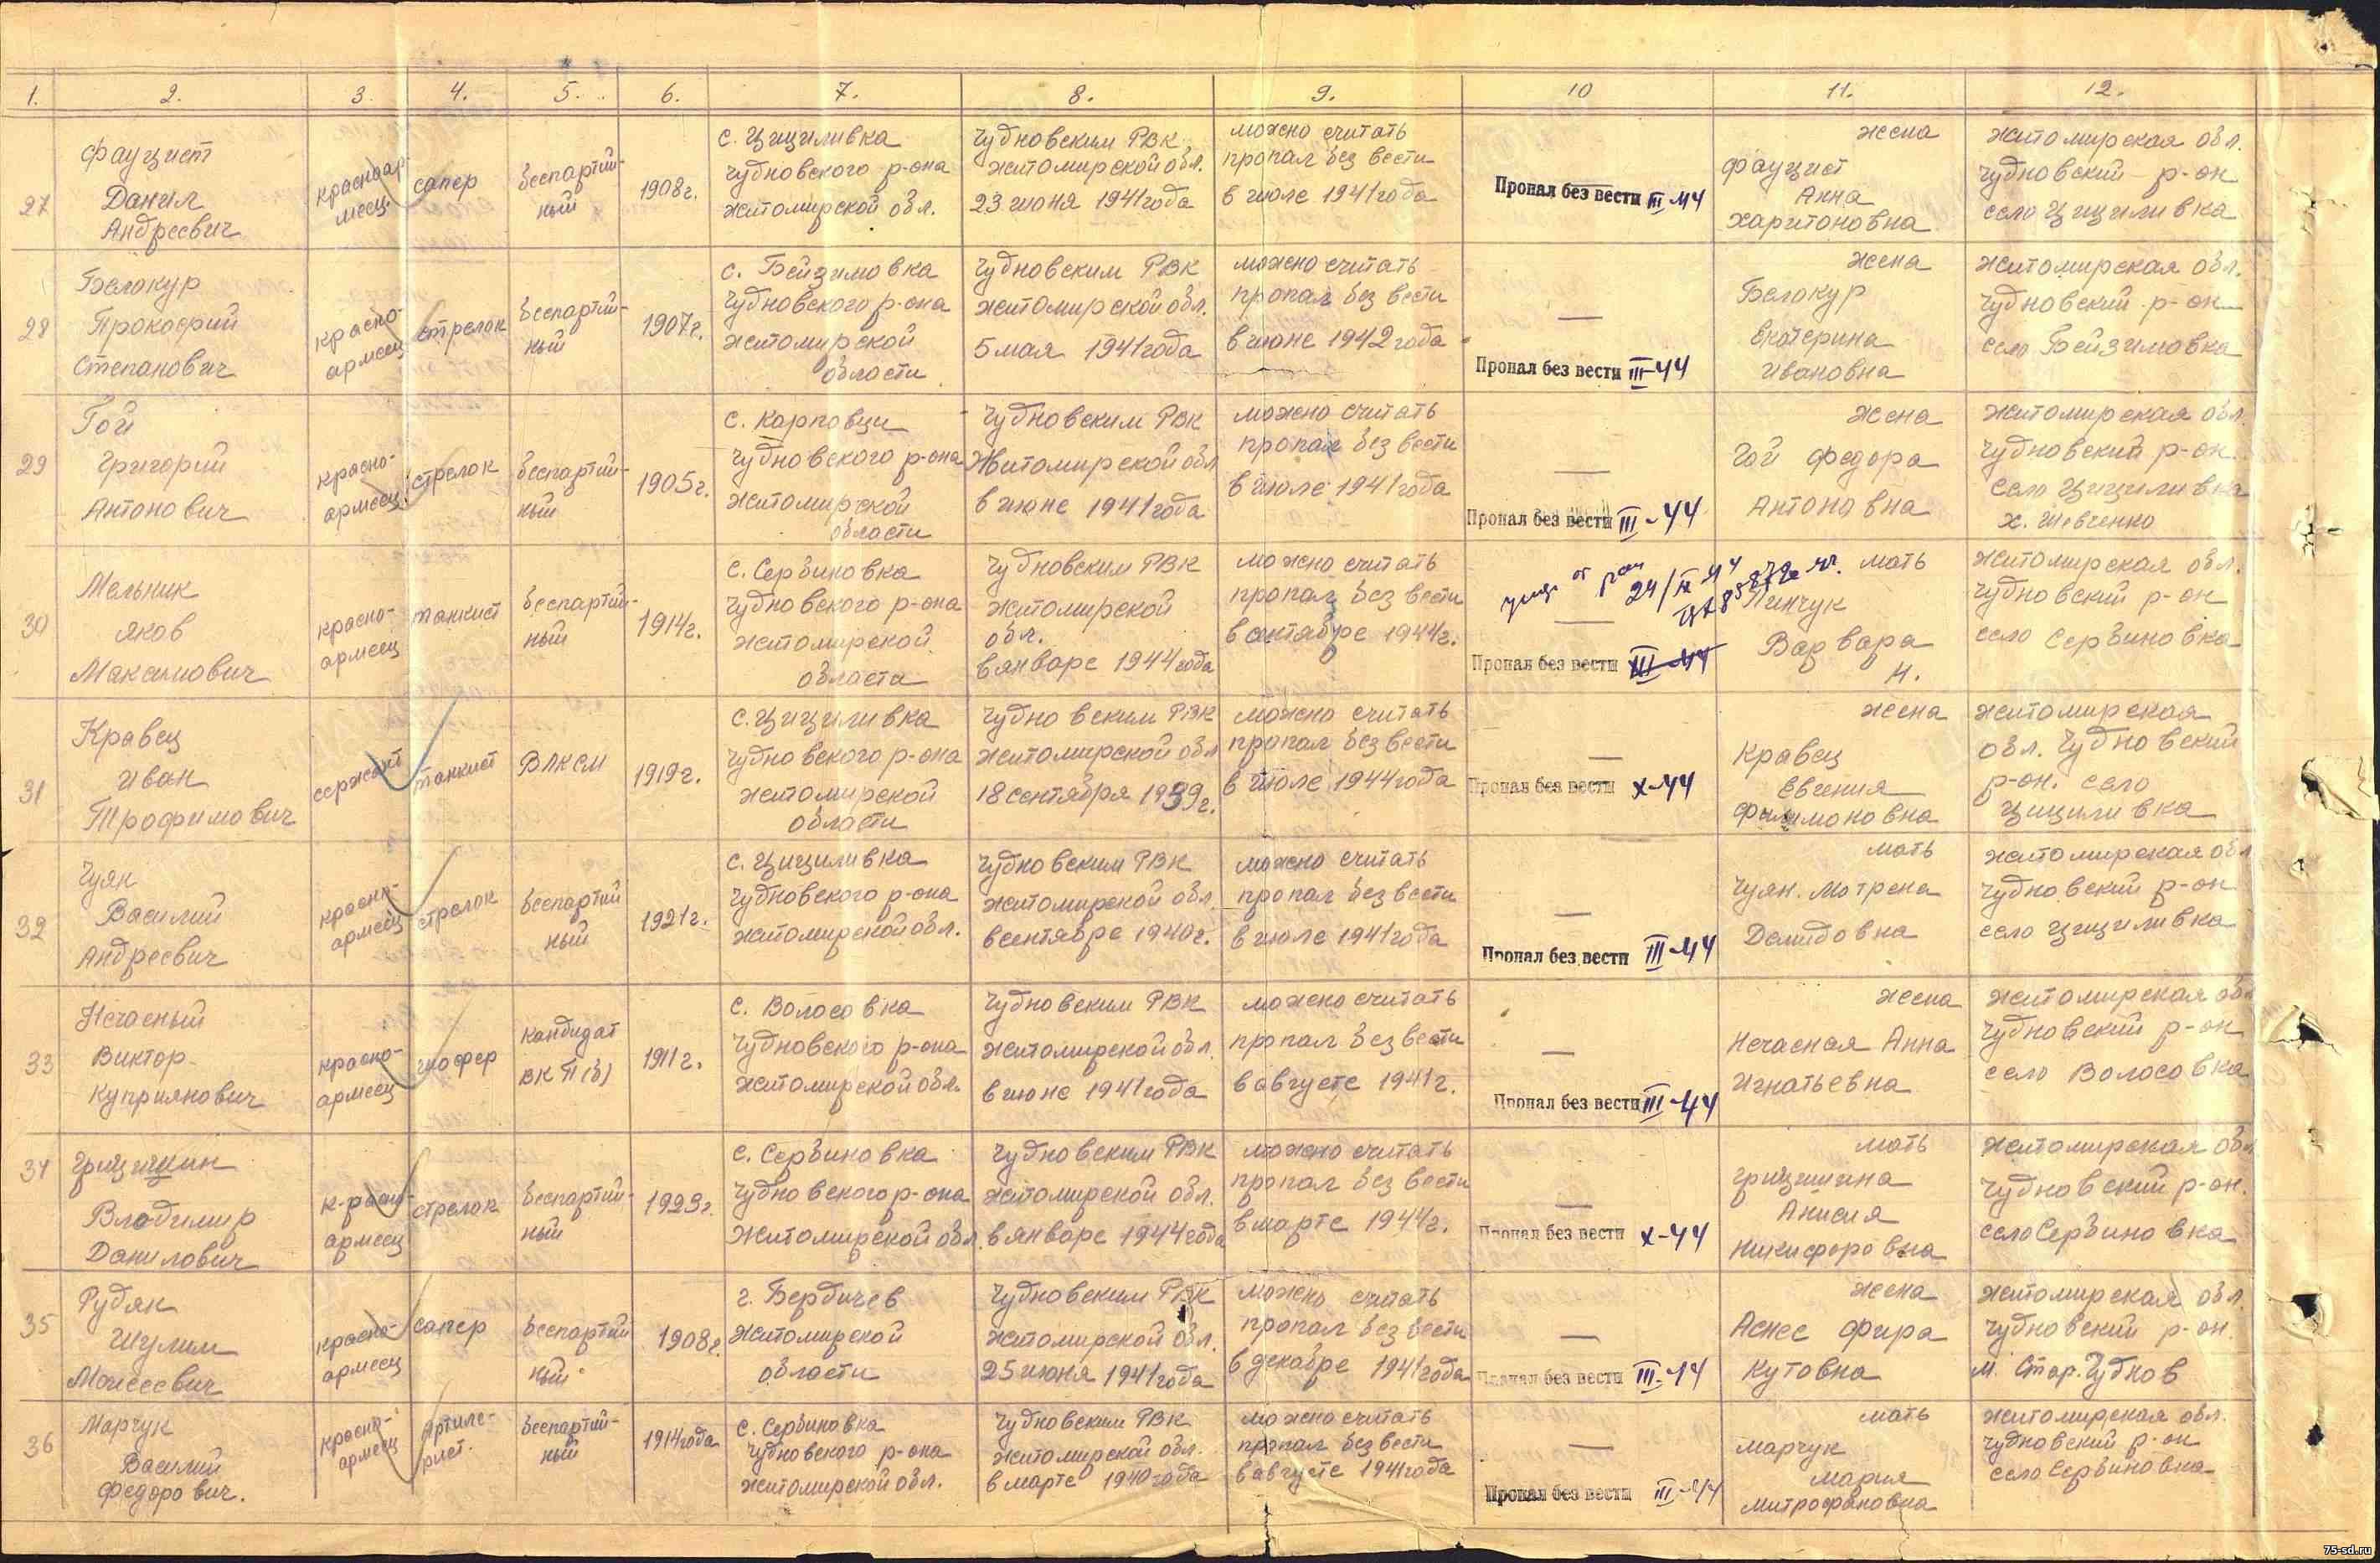 1. 2. 3. 4. 5. 6. 7. 8. 9. 10 11. 12.
27
Фауцист
Данил
Андреевич
красноар-
меец
сапер
беспартий-
ный
1908г.
с. Цициливка
Чудновского р-она
Житомирской обл.
Чудновским РВК
Житомирской обл.
23 июня 1941 года
можно считать
пропал без вести
в июле 1941 года
Пропал без вести III-44
жена
Фауцист
Анна
Харитоновна
Житомирская обл.
Чудновский р-он
село Цициливка
28
Белокур
Прокофий
Степанович
красно-
армеец
стрелок
беспартий-
ный
1907г.
с. Бейзимовка
Чудновского р-она
Житомирской
области
Чудновским РВК
Житомирской обл.
5 мая 1941 года
можно считать
пропал без вести
в июне 1942 года
—
Пропал без вести III-44
жена
Белокур
Екатерина
Ивановна
Житомирская обл.
Чудновский р-он
село Бейзимовка
29
Гой
Григорий
Антонович
красно-
армеец
стрелок
беспартий-
ный
1905г.
с. Карповци
Чудновского р-она
Житомирской
области
Чудновским РВК
Житомирской обл
в июне 1941 года
можно считать
пропал без вести
в июле 1941 года
—
Пропал без вести III-44
жена
Гой Федора
Антоновна
Житомирская обл.
Чудновский р-он.
село Цициливка
х. Шевченко
30
Мельник
Яков
Максимович
красно-
армеец
танкист
беспартий-
ный
1914г.
с. Сербиновка
Чудновского р-она
Житомирской
области
Чудновским РВК
Житомирской
обл.
в январе 1944 года
можно считать
пропал без вести
в сентябре 1944г.
от ран
24/IX 44
—
Пропал без вести XII-44
мать
Пинчук
Варвара
И.
Житомирская обл.
Чудновский р-он
село Сербиновка
31
Кравец
Иван
Трофимович
сержант
танкист
ВЛКСМ
1919г.
с. Цициливка
Чудновского р-она
Житомирской
области
Чудновским РВК
Житомирской обл
18 сентября 1939г.
можно считать
пропал без вести
в июле 1944 года
—
Пропал без вести X-44
жена
Кравец
Евгения
Филимоновна
Житомирская
обл. Чудновский
р-он. село
Цициливка
32
Чуян
Василий
Андреевич
красно-
армеец
стрелок
беспартий
ный
1921г.
с. Цициливка
Чудновского р-она
Житомирской обл.
Чудновским РВК
Житомирской обл.
в сентябре 1940г.
можно считать
пропал без вести
в июле 1941 года
—
Пропал без вести III-44
мать
Чуян. Мотрена
Демидовна
Житомирская обл
Чудновский р-он
село Цициливка
33
Нечасный
Виктор
Куприянович
красно-
армеец
шофер
кандидат
ВКП(б)
1911г.
с. Волосовка
Чудновского р-она
Житомирской обл.
Чудновским РВК
Житомирской обл.
в июне 1941 года
можно считать
пропал без вести
в августе 1941г.
—
Пропал без вести III-44
жена
Нечасная Анна
Игнатьевна
Житомирская обл
Чудновский р-он
село Волосовка
34
Грицишин
Владимир
Данилович
к-расно-
армеец
стрелок
беспартий-
ный
1923г.
с. Сербиновка
Чудновского р-она
Житомирской обл.
Чудновским РВК
Житомирской обл.
в январе 1944 года
можно считать
пропал без вести
в марте 1944г.
—
Пропал без вести X-44
мать
Грицишина
Анисия
Никифоровна
Житомирская обл
Чудновский р-он.
село Сербиновка
35
Рудяк
Шулим
Моисеевич
красно-
армеец
сапер
беспартий
ный
1908г.
г. Бердичев
Житомирской
области
Чудновским РВК
Житомирской обл.
25 июня 1941 года
можно считать
пропал без вести
в декабре 1941 года
—
Пропал без вести III-44
жена
Аснес Фира
Кутовна
Житомирская обл.
Чудновский р-он.
м. Стар. Чуднов
36
Марчук
Василий
Федорович.
красно-
армеец
Артиле-
рист.
беспартий-
ный
1914 года
с. Сербиновка
Чудновского р-она
Житомирской обл.
Чудновским РВК
Житомирской обл.
в марте 1940 года
можно считать
пропал без вести
в августе 1941 года
—
Пропал без вести III-44
мать
Марчук
Мария
Митрофановна
Житомирская обл.
Чудновский р-он
село Сербиновка
75-sd.ru